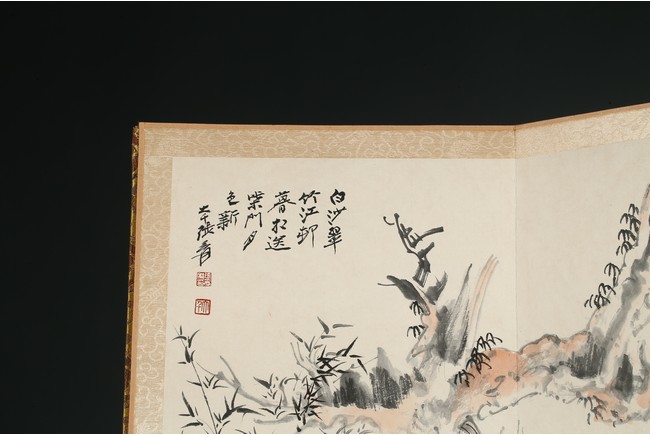 白沙翠
竹江邨
暮相送
柴門月
色新
大千張爰